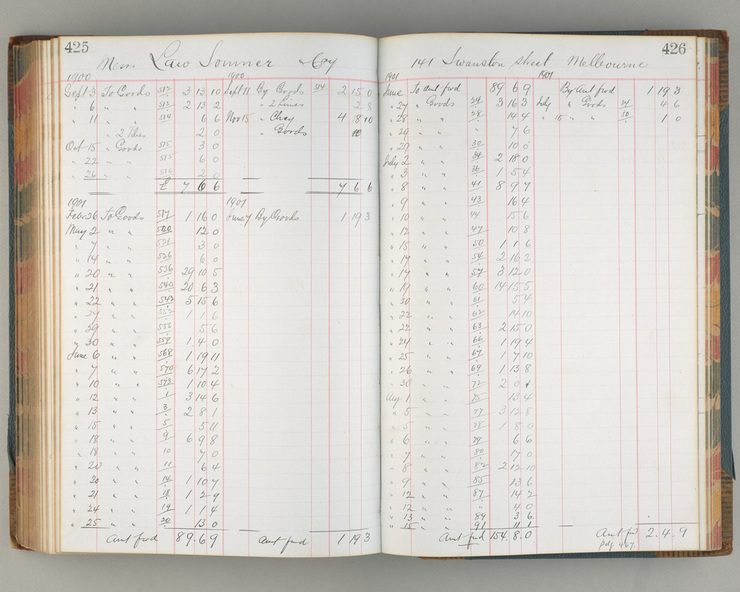 425
Messrs Law Somner & Cy
1900 1900
Sept 3 To Goods 3 13 10 Sept 11 By Goods 2 15 0
" 6 " " 2 13 2 " 2
" 11 " " 6 6 Nov 15 " 4 8 10
2 0 " Goods
Oct 15 " Goods 3 0
" 22 " " 6 0
" 26 " " 2 0
£ 7 6 6 7 6 6
1901 1901
Feb 26 To Goods 517 1 16 0 June 7 By Goods 1 19 3
May 2 " " 12 0
" 7 " " 3 0
" 14 " " 6 0
" 20 " " 536 29 10 5
" 21 " " 540 20 6 3
" 22 " " 542 5 15 6
" 27 " " 1 1 6
" 29 " " 5 6
" 30 " " 1 4 0
June 6 " " 568 1 19 11
" 7 " " 570 6 17 2
" 10 " " 573 1 10 4
" 12 " " 1 3 14 6
" 13 " " 3 2 8 1
" 15 " " 5 5 11
" 18 " " 9 6 9 8
" 18 " " 10 7 0
" 20 " " 11 6 4
" 20 " " 14 1 10 7
" 21 " " 18 1 2 9
" 24 " " 19 1 1 4
" 25 " " 20 13 0
Amt fwd 89. 6 9 Amt fwd 1 19 3
426
141 Swanston Street Melbourne
1901 1901
June To Amt fwd 89 6 9 By Amt fwd 1 19 3
" 27 " Goods 24 3 16 3 July " Goods 4 6
" 28 " " 28 14 4 " 15 " " 1 0
" 29 " " 7 6
" 29 " " 30 10 0
July 2 " " 34 2 18 0
" 3 " " 36 1 5 4
" 8 " " 41 8 9 7
" 9 " " 43 16 4
" 10 " " 44 15 6
" 12 " " 47 10 8
" 15 " " 50 1 1 6
" 17 " " 54 2 16 2
" 17 " " 57 3 12 0
" 19 " " 60 14 15 5
" 20 " " 61 5 4
" 22 " " 62 14 10
" 22 " " 63 2 15 0
" 24 " " 66 1 19 4
" 25 " " 67 1 7 10
" 26 " " 69 1 13 8
" 30 " " 72 2 0
Aug 1 " " 75 13 4
" 5 " " 77 3 12 8
" 5 " " 78 1 8 0
" 6 " " 79 6 6
" 7 " " 80 17 0
" 8 " " 82 2 12 10
" 9 " " 85 13 6
" 12 " " 87 14 2
" 12 " " " 4 0
" 13 " " 89 3 6
" 15 " " 91 11 1
Amt fwd 154. 8. 0 Amt fwd 2. 4. 9